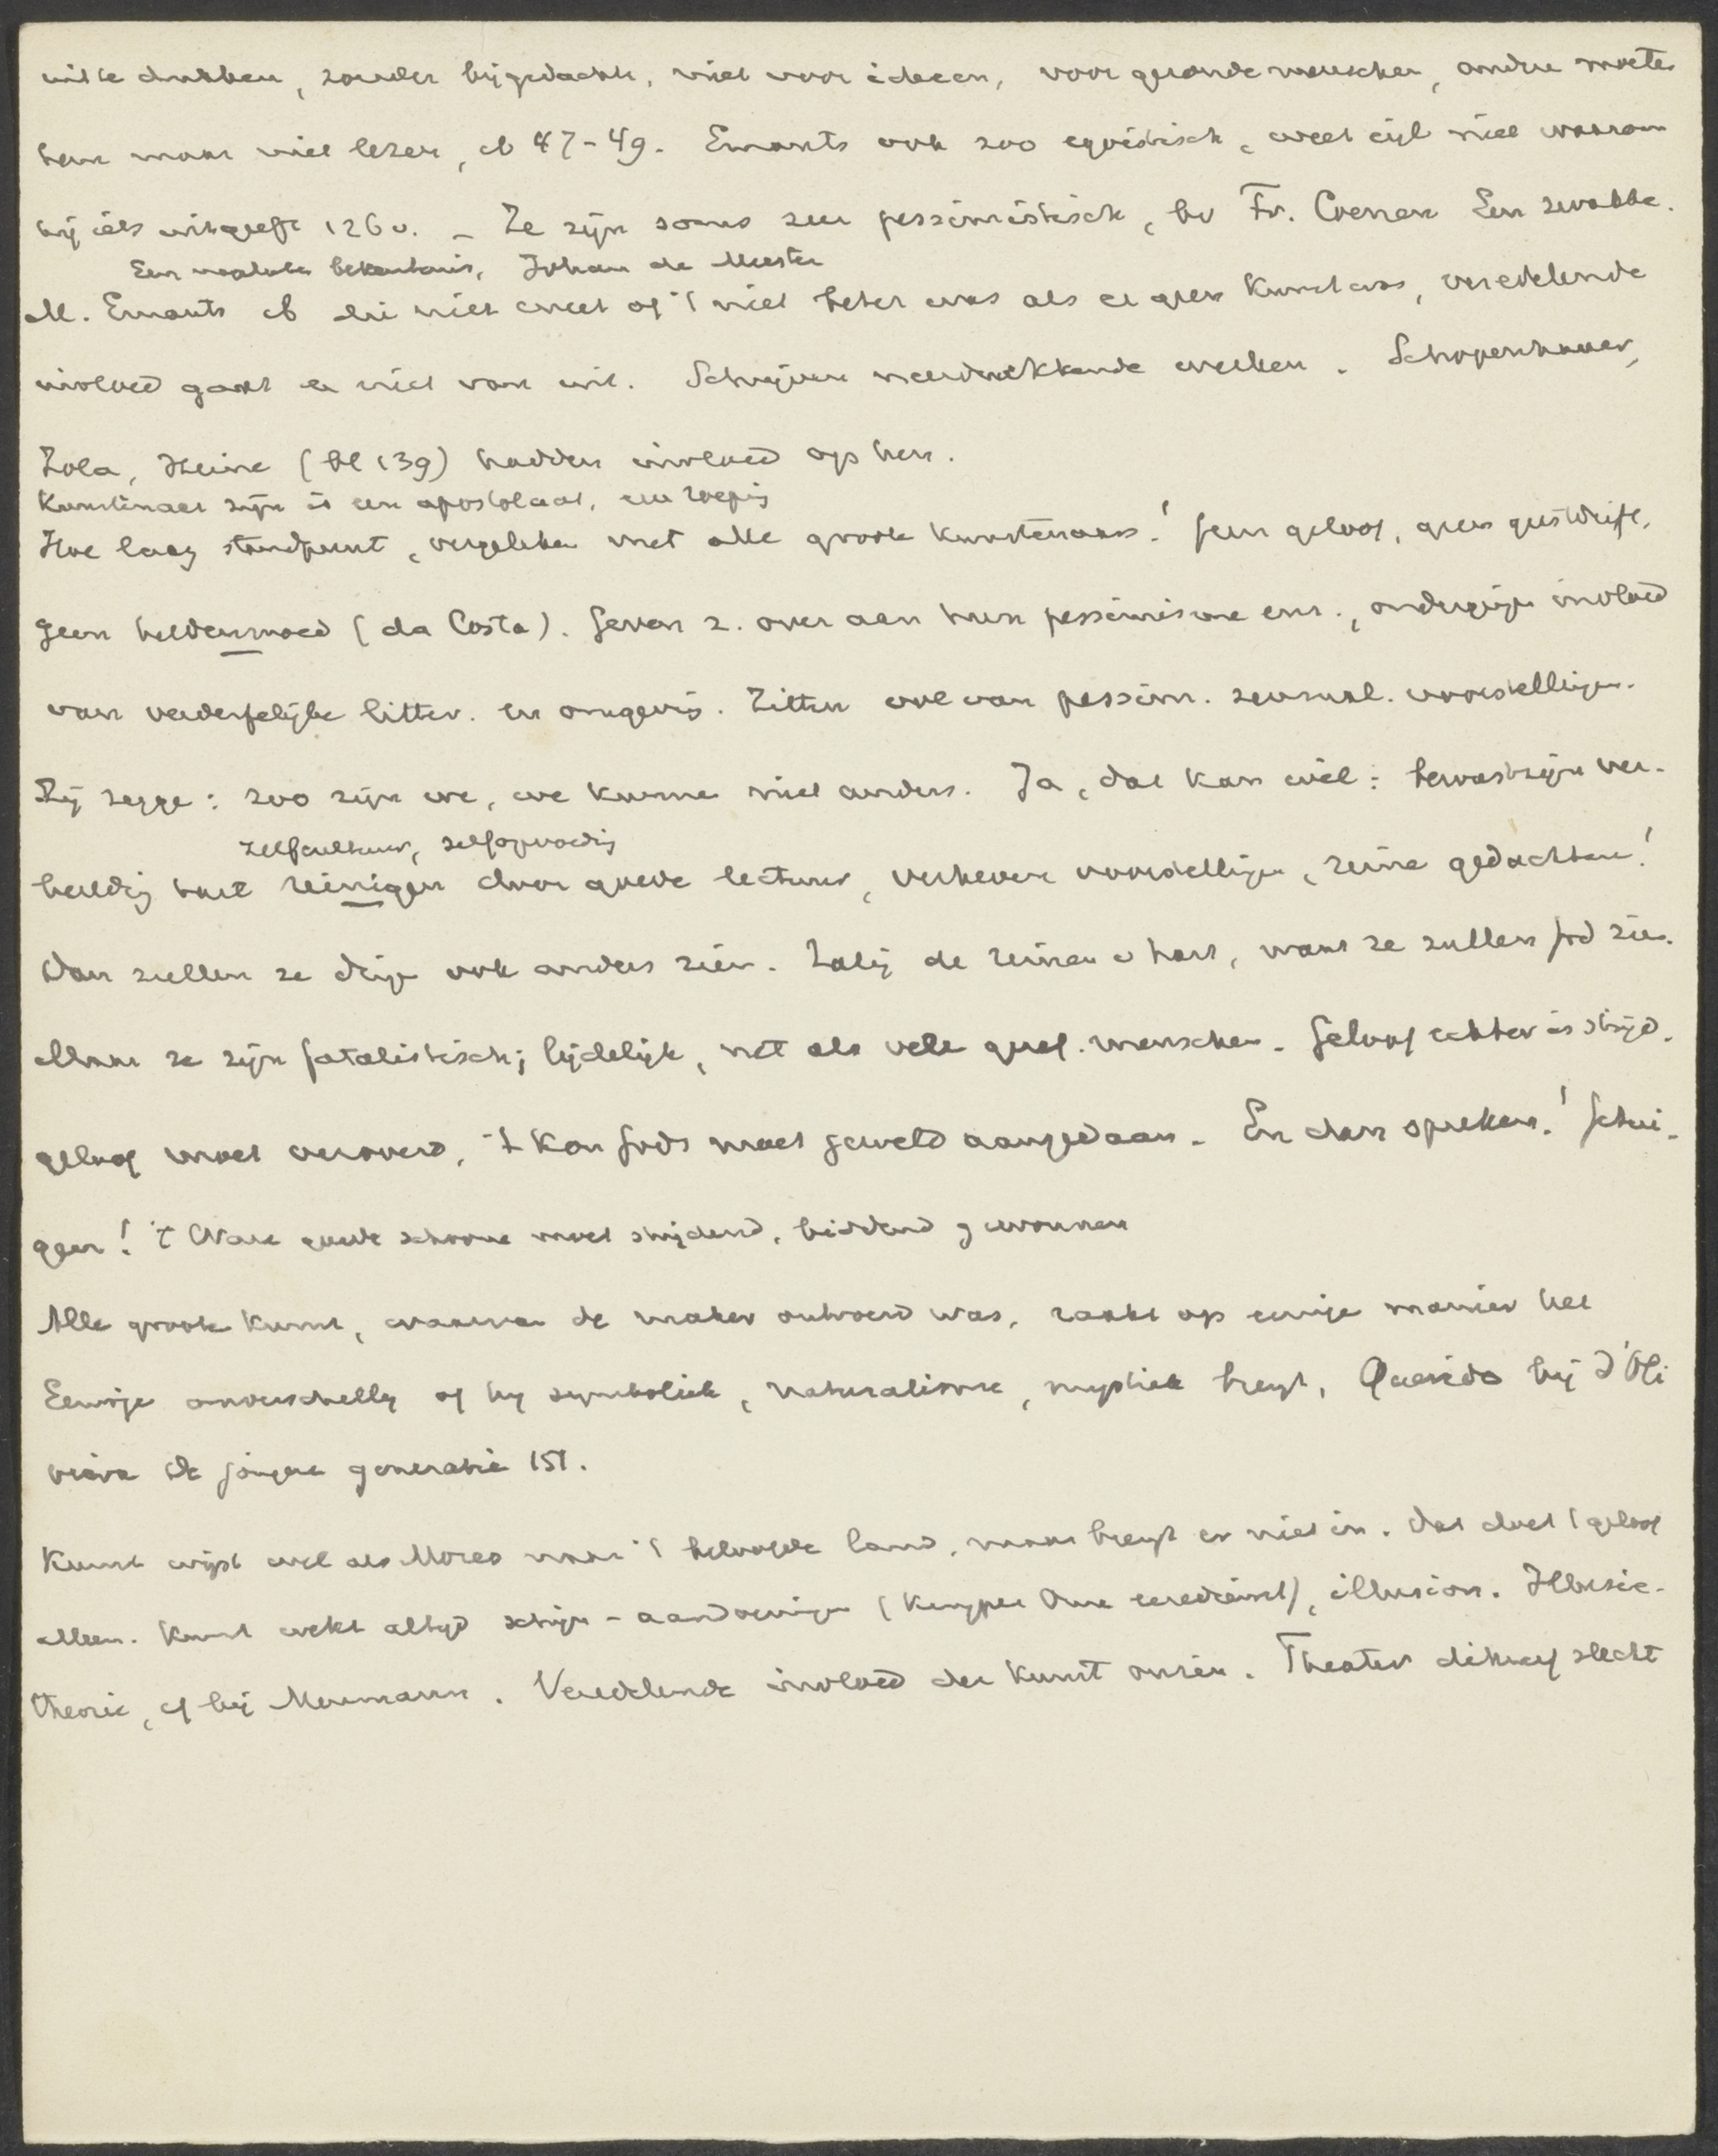 uit te drukken, zonder bijgedachte, niet voor ideeen, voor gezonde menschen, andere moeten
hen maar niet lezen, cf 47-49. Emants ook zoo egoistisch, weet eigl niet waarom
hij iets uitgeeft 126 v. - Ze zijn soms zeer pessimistisch, bv Fr. Coenen Een zwakke.
Een nagelaten bekentenis, Johan de Meester
M. Emants cf die niet weet of 't niet beter was als er geen kunst was, veredelende
invloed gaat er niet van uit. Schrijven neerdrukkende werken. Schopenhauer,
Zola, Heine (bl 139) hadden invloed op hen.
Kunstenaar zijn is een apostolaat, een roeping
Hoe laag standpunt, vergeleken met alle groote kunstenaars! Geen geloof, geen geestdrift,
geen heldenmoed (da Costa). Geven z. over aan hun pessimisme enz., ondergingen invloed
van verderfelijke litter. en omgeving. Zitten vol van pessim. sensual. voorstellingen.
Zij zeggen: zoo zijn we, we kunnen niet anders. Ja, dat kan wel: bewustzijn ver-
zelfcultuur, zelfopvoeding
heldig hart reinigen door goede lectuur, verheven voorstellingen, reine gedachten!
Dan zullen ze dingen ook anders zien. Zalig de reinen v hart, want ze zullen God zien.
Maar ze zijn fatalistisch; lijdelijk, net als vele geref. menschen. Geloof echter is strijd.
geloof moet veroverd, 't Kon Gods moet geweld aangedaan. En dan spreken! Getui-
gen! 't Ware goede schoone moet strijdend, biddend gewonnen
Alle groote kunst, waarvan de maker ontroerd was, raakt op eenige manier het
Eeuwige onverschillig of hij symboliek, naturalisme, mystiek brengt, Querido bij d'Oli
veira De jongere generatie 151.
Kunst wijst wel als Mozes naar 't beloofde land, maar brengt er niet in. Dat doet 't geloof
alleen. Kunst wekt altijd schijn-aandoeningen (Kuyper Onze eeredienst), illusion. Illusie-
theorie, cf bij Meumann. Veredelende invloed der kunst onzeker. Theater dikwijls slecht